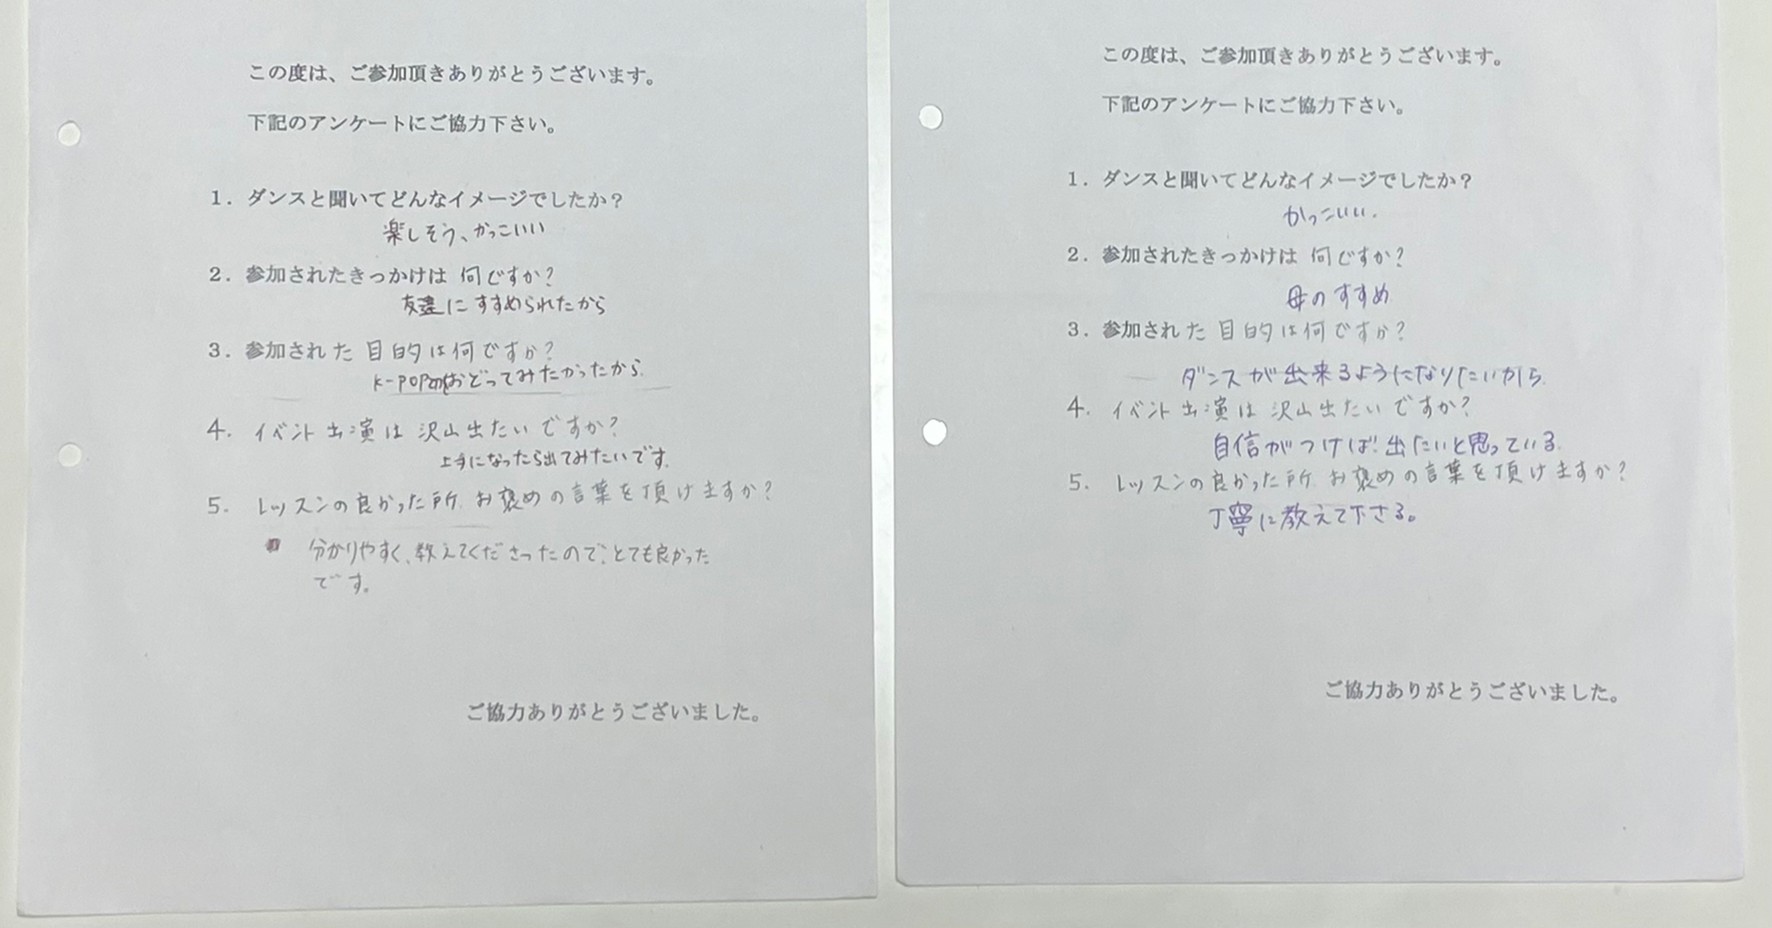 この度は、ご参加頂きありがとうございます。
下記のアンケートにご協力下さい。
1．ダンスと聞いてどんなイメージでしたか？
楽しそう、かっこいい
2．参加されたきっかけは 何ですか？
友達に すすめられたから
3．参加された 目的は何ですか？
K-POPのおどってみたかったから
4. イベント出演は 沢山出たいですか？
上手になったら出てみたいです。
5. レッスンの良かった所、お褒めの言葉を頂けますか？
分かりやすく、教えてくださったので、とても良かった
です。
ご協力ありがとうございました。
この度は、ご参加頂きありがとうございます。
下記のアンケートにご協力下さい。
1．ダンスと聞いてどんなイメージでしたか？
かっこいい.
2．参加されたきっかけは 何ですか？
母のすすめ
3．参加された 目的は何ですか？
ダンスが出来るようになりたいから.
4. イベント出演は 沢山出たいですか？
自信がつけば出たいと思っている.
5. レッスンの良かった所、お褒めの言葉を頂けますか？
丁寧に教えて下さる。
ご協力ありがとうございました。